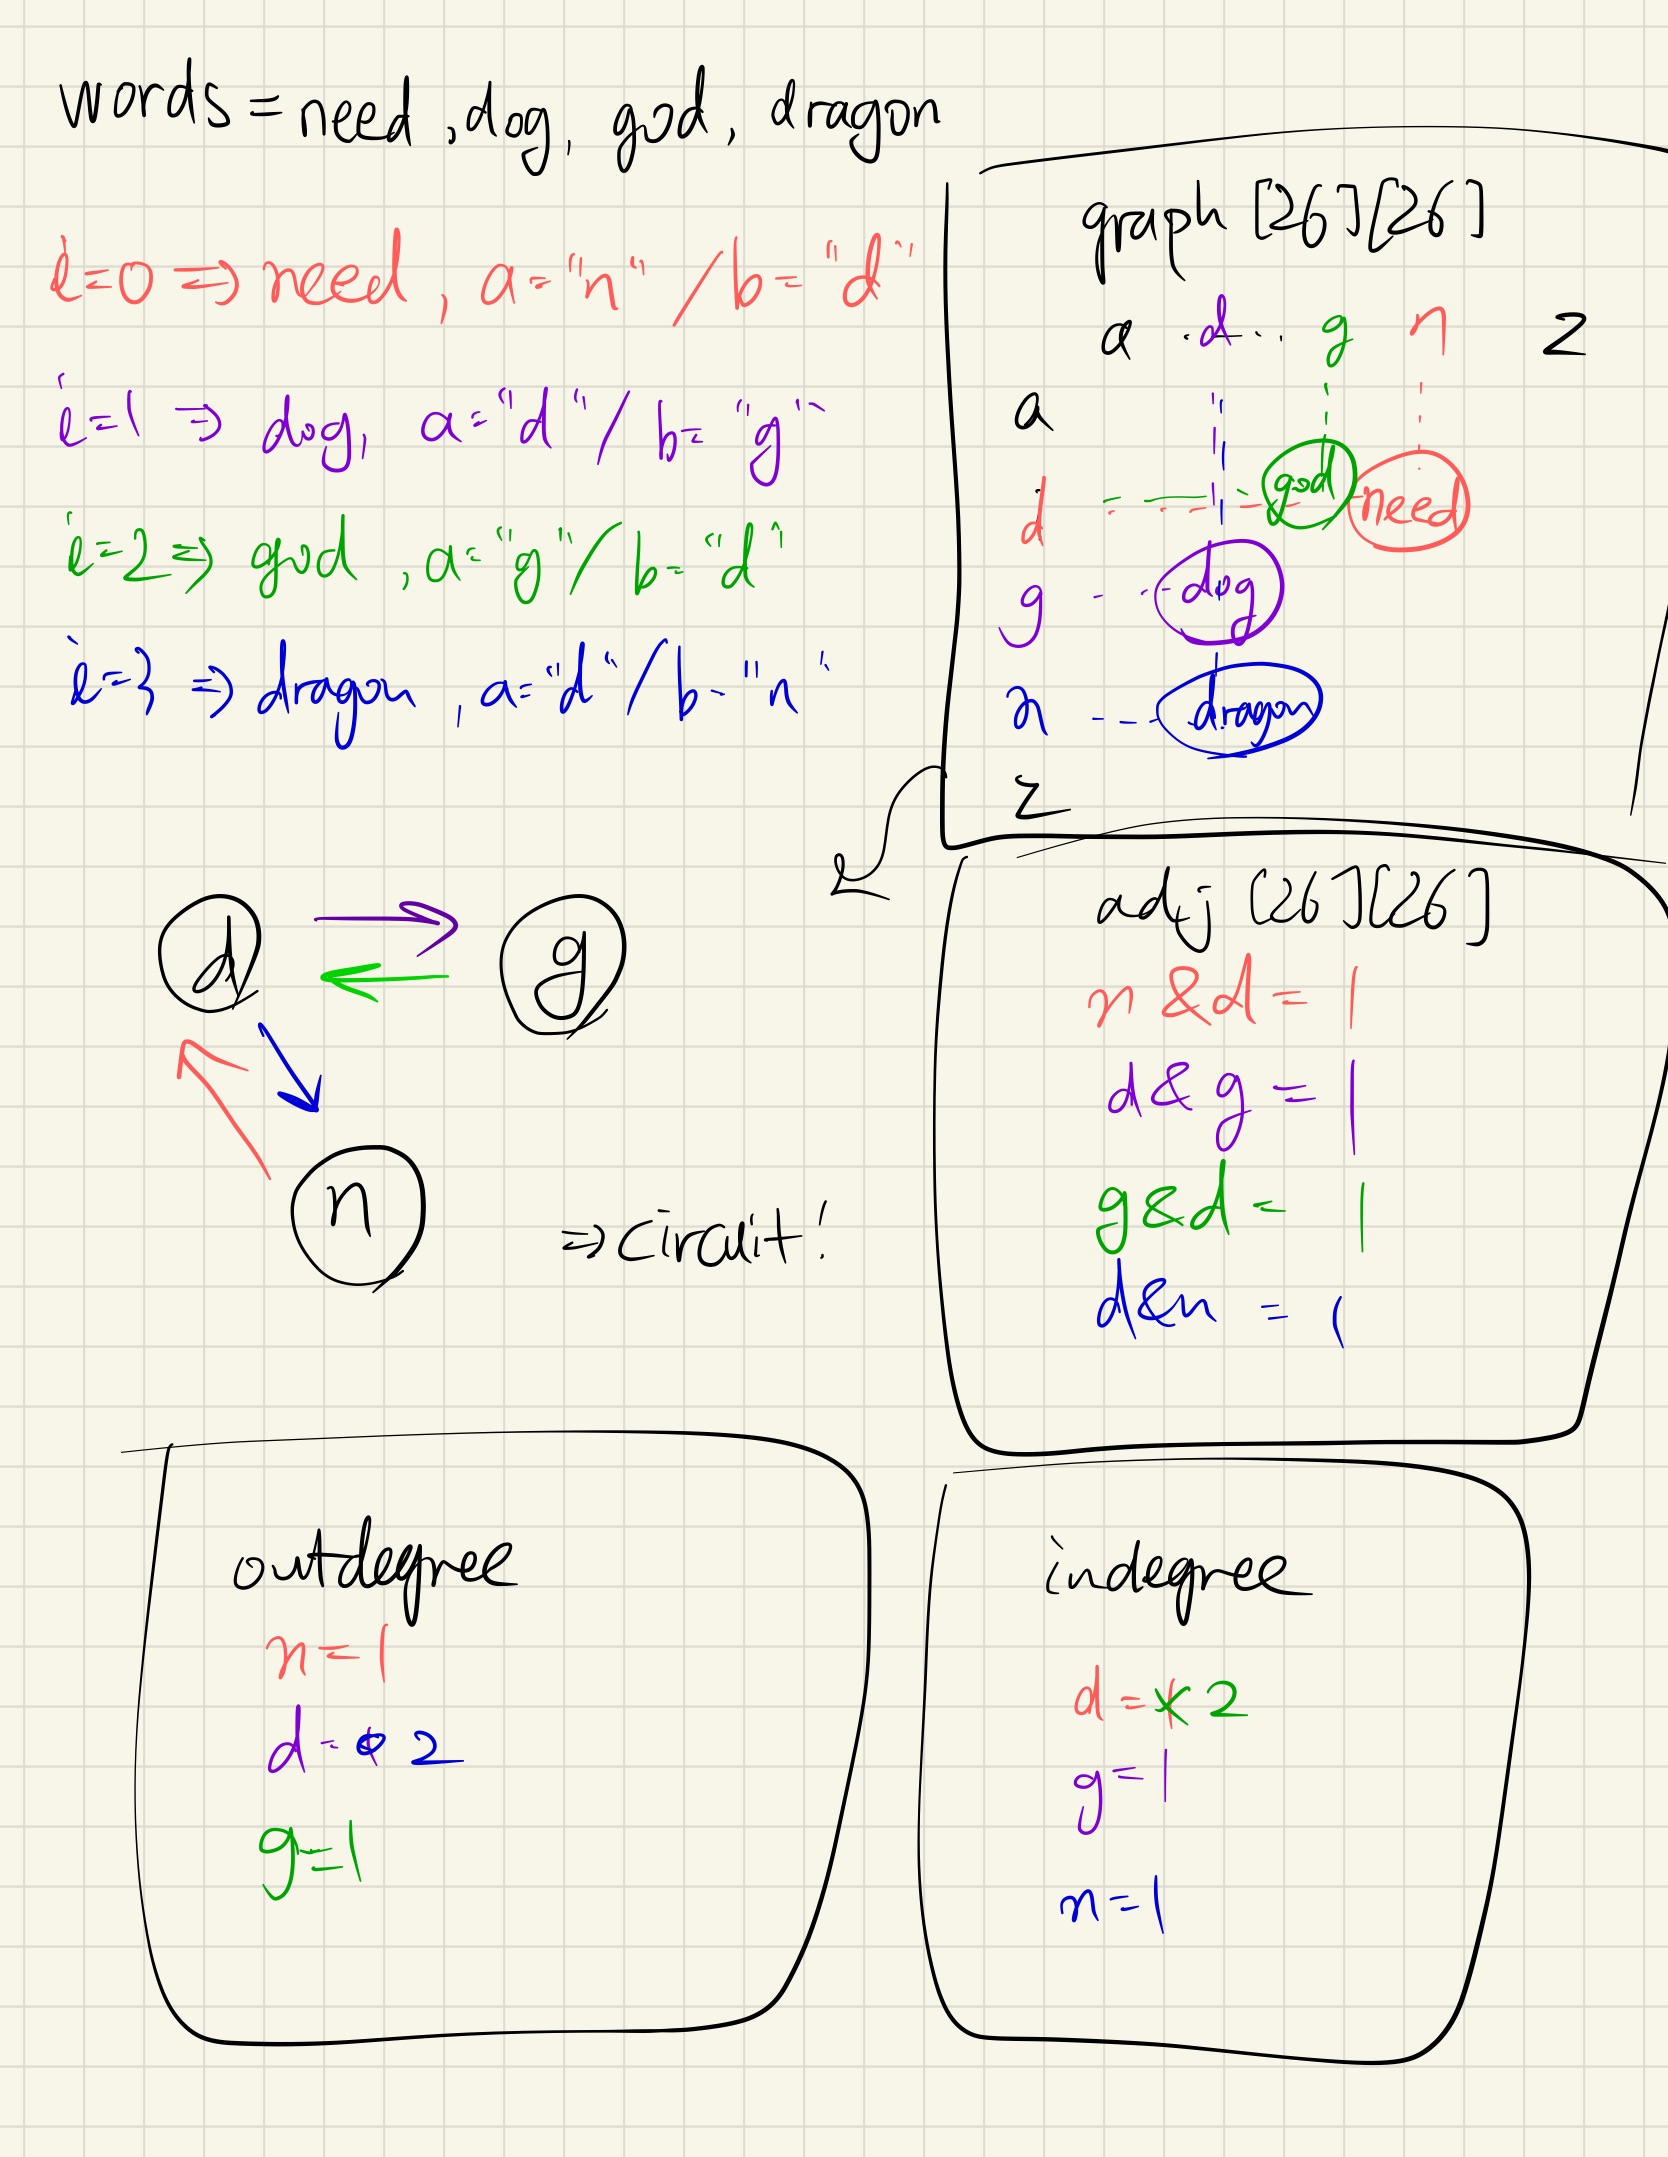 words = need, dog, god, dragon
i=0 => need, a="n" / b="d"
i=1 => dog, a="d" / b="g"
i=2 => god, a="g" / b="d"
i=3 => dragon, a="d" / b="n"
graph [26][26]
a . d . . g n z
a
d god need
g dog
n dragon
z
d g
n
=> circuit!
adj [26][26]
n & d = 1
d & g = 1
g & d = 1
d & n = 1
outdegree
n = 1
d = 1 2
g = 1
indegree
d = 1 2
g = 1
n = 1